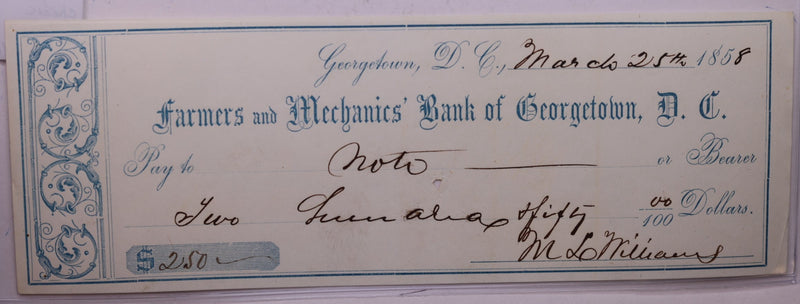 Georgetown, D. C., March 25th 1858
Farmers and Mechanics' Bank of Georgetown, D. C.
Pay to Note or Bearer
Two Hundred & fifty 00/100 Dollars.
$ 250
M L Williams